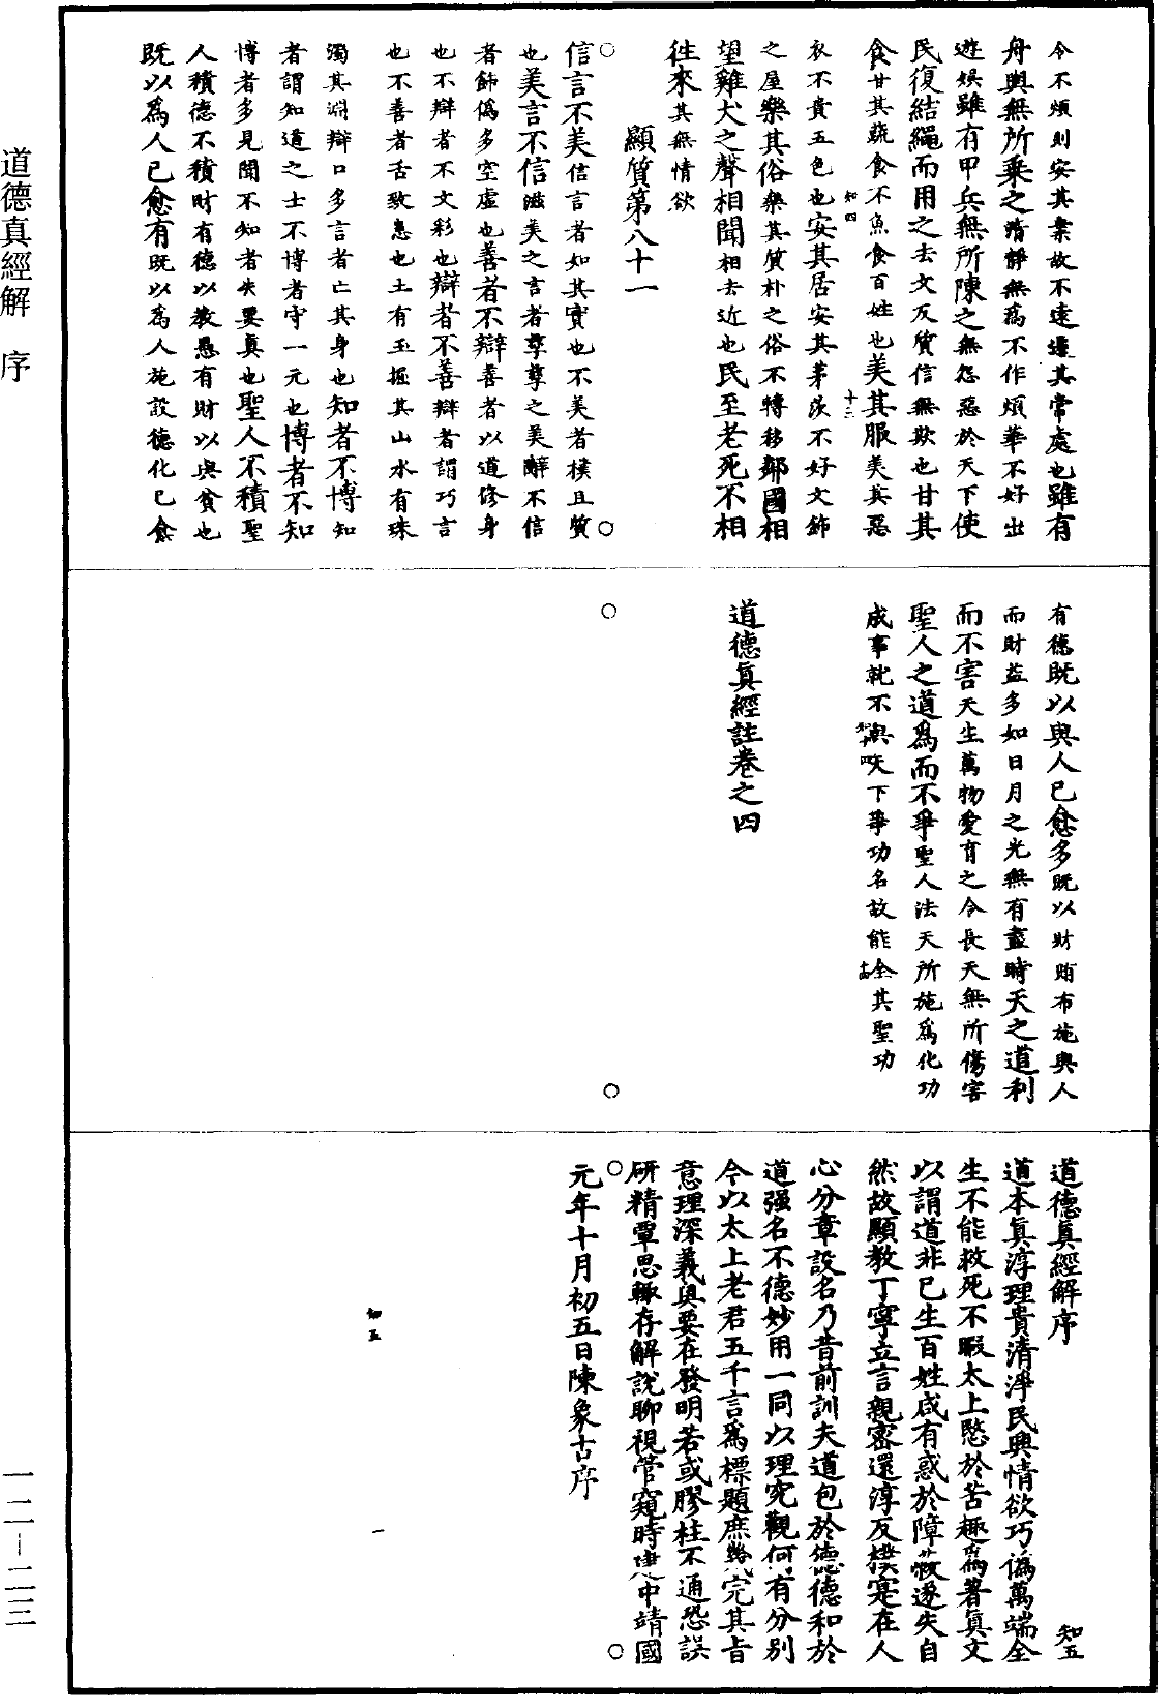 令不煩則安其業故不遠遷其常處也雖有
舟輿無所乗之清靜無為不作煩華不好出
遊娛雖有甲兵無所陳之無怨惡於天下使
民復結繩而用之去文反質信無欺也甘其
食甘其蔬食不魚食百姓也美其服美其惡
知四
十三
衣不貴五色也安其居安其茅茨不好文飾
之屋樂其俗樂其質朴之俗不轉移鄰國相
望雞犬之聲相聞相去近也民至老死不相
徃來其無情欲
顯質第八十一
信言不美信言者如其實也不美者樸且質
也美言不信滋美之言者孳孳之美辭不信
者飾僞多空虛也善者不辯善者以道修身
也不辯者不文彩也辯者不善辯者謂巧言
也不善者舌致患也土有玉掘其山水有珠
濁其淵辯口多言者亡其身也知者不博知
者謂知道之士不博者守一元也博者不知
博者多見聞不知者失要真也聖人不積聖
人積德不積財有德以教愚有財以與貧也
既以為人已愈有既以為人施設德化已愈
有德既以與人已愈多既以財賄布施與人
而財益多如日月之光無有盡時天之道利
而不害天生萬物愛育之令長天無所傷害
聖人之道爲而不爭聖人法天所施爲化功
成事就不與天下爭功名故能全其聖功
知四
十四
道德眞經註卷之四
道德眞經解序
知五
道本眞淳理貴清淨民興情欲巧僞萬端全
生不能救死不暇太上愍於苦趣爲著眞文
以謂道非已生百姓咸有惑於障蔽遂失自
然故顯教丁寧立言親密還淳反樸寔在人
心分章設名乃昔前訓夫道包於德德和於
道强名不德妙用一同以理究觀何有分別
今以太上老君五千言爲標題庶幾完其旨
意理深義奥要在發明若或膠柱不通恐誤
研精覃思輙存解說聊視管窺時建中靖國
元年十月初五日陳象古序
知五
一
道德真經解　序
一二－二三